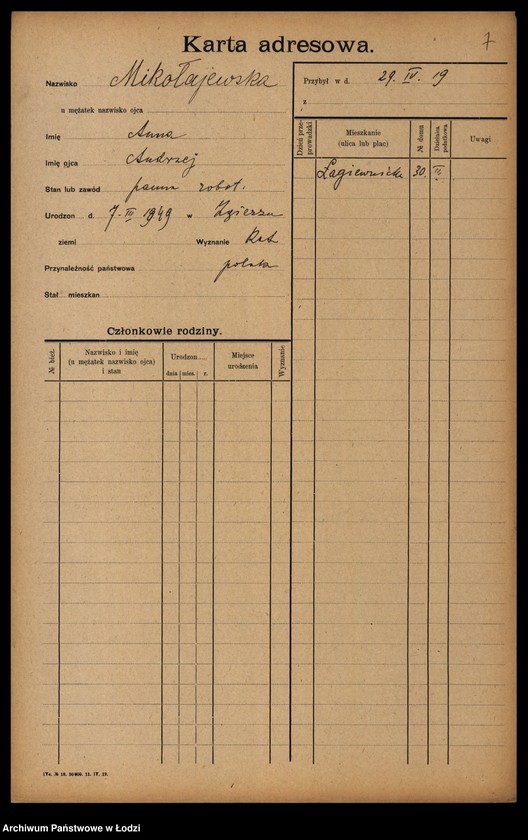 Karta adresowa.
7
Nazwisko Mikołajewska
u mężatek nazwisko ojca
Imię Anna
Imię ojca Andrzej
Stan lub zawód panna robot.
Urodzon d. 7-III 1949 w Zgierzu
ziemi Wyznanie Kat
Przynależność państwowa polska
Stał mieszkan
Członkowie rodziny.
№ bież.
Nazwisko i imię
(u mężatek nazwisko ojca)
i stan
Urodzon
dnia mies. r.
Miejsce
urodzenia
Wyznanie
Przybył w d. 29. IV. 19
z
Dzień prze-
prowadzki
Mieszkanie
(ulica lub plac)
№ domu
Dzielnica
podatkowa
Uwagi
Łagiewnicka 30. II
Archiwum Państwowe w Łodzi